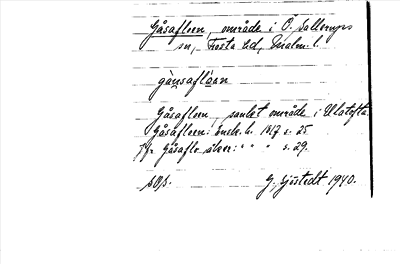 Gåsafleen, område i Ö. Sallerups
sn, Frosta hd, Malm. l.
gåusafleen
Gåsafleen, sankt område i Ulstofta.
Gåsafleen: Ensk. h. 1817 s. 25
Jfr Gåsafle åker: " " " s. 29.
G. Sjöstedt 1940.